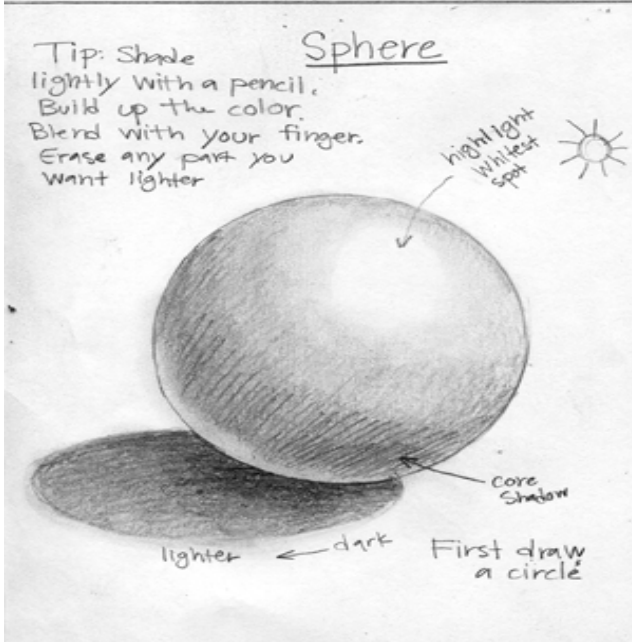 Sphere
Tip: Shade
lightly with a pencil.
Build up the color.
Blend with your finger.
Erase any part you
want lighter
highlight
whitest
spot
core
Shadow
lighter ← dark
First draw
a circle